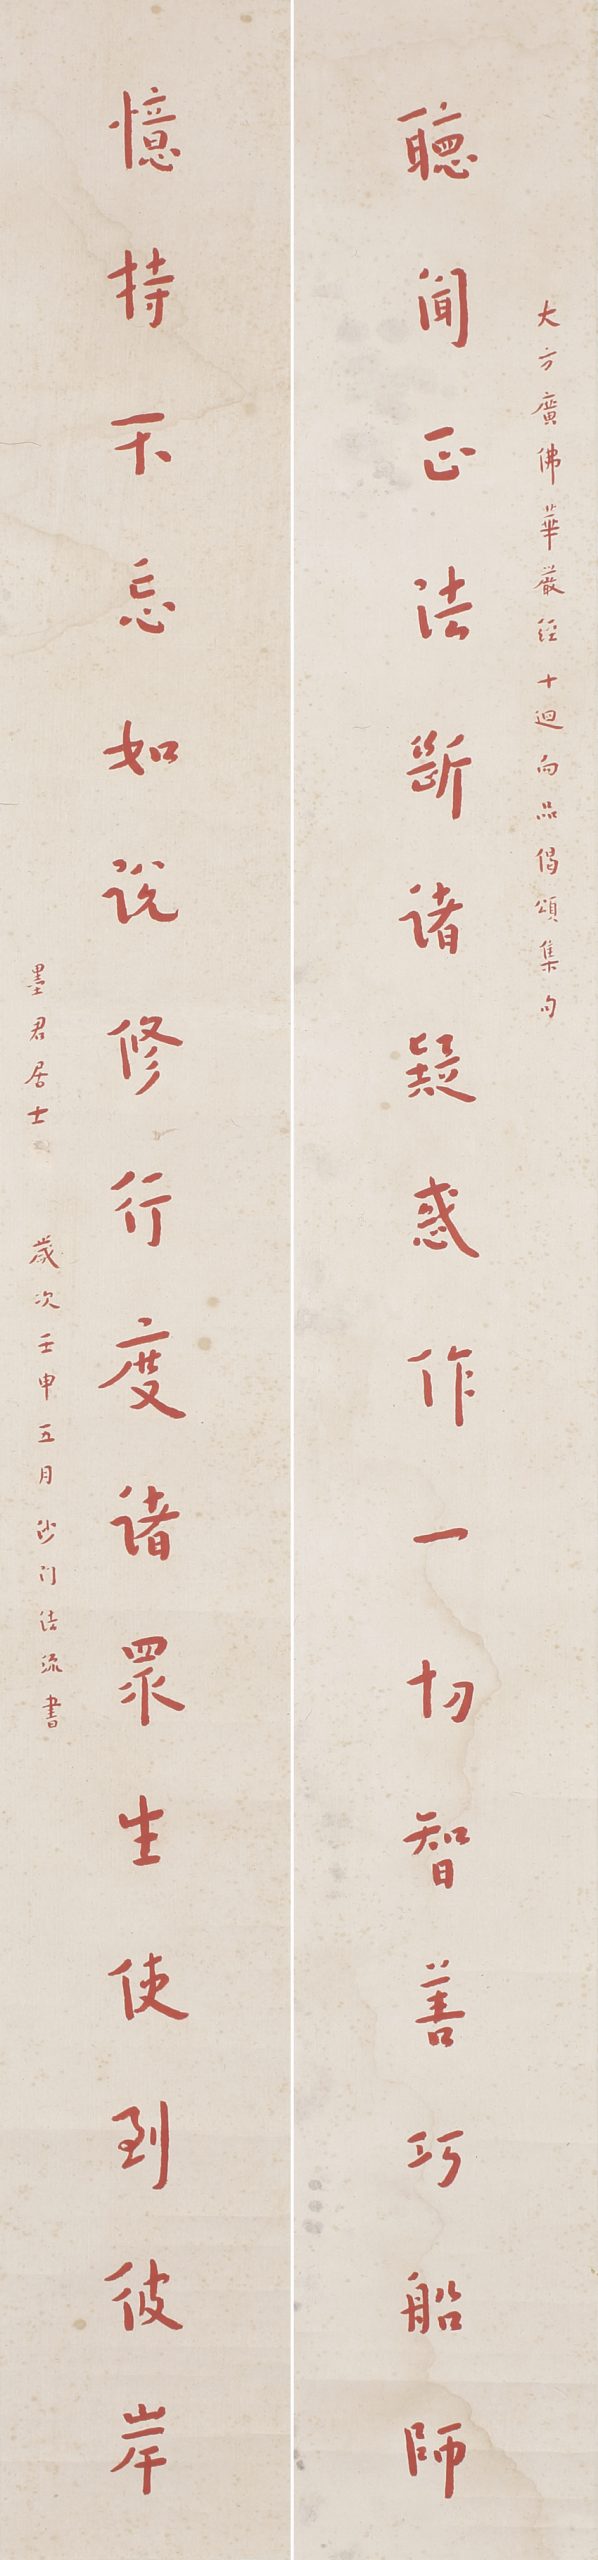 大方廣佛華嚴經十迴向品偈頌集句
聽聞正法斷諸疑惑作一切智善巧船師
憶持不忘如說修行度諸眾生使到彼岸
墨君居士 歲次壬申五月沙门法流書